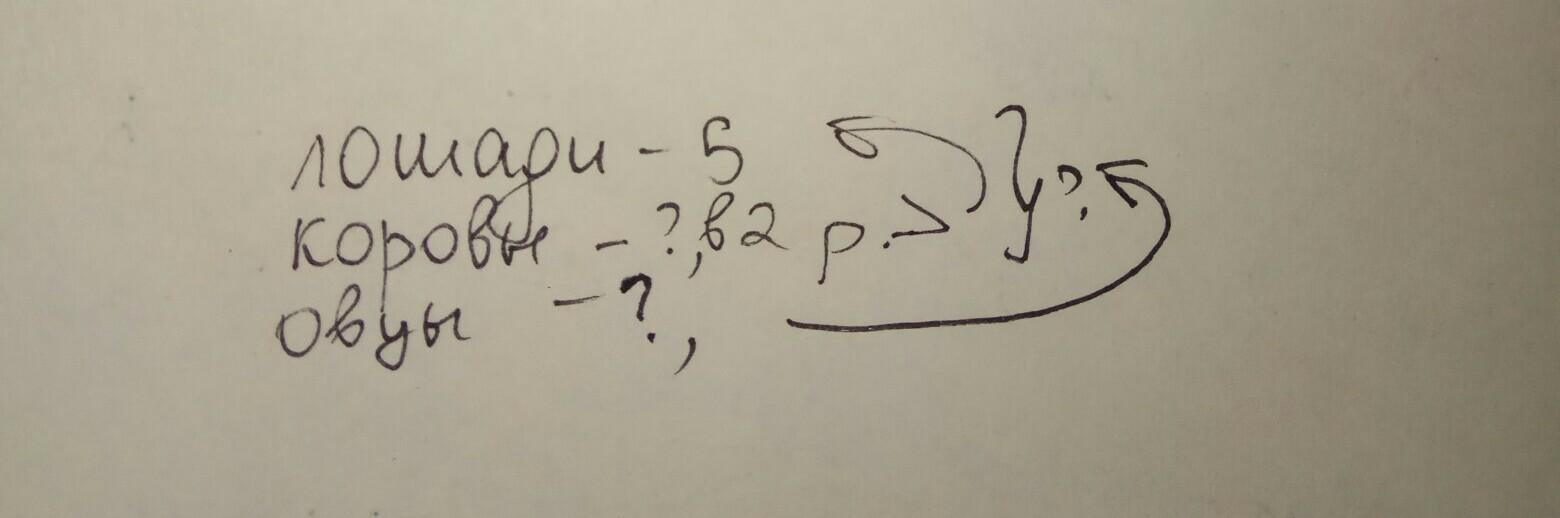 лошади - 5
коровы - ?, в 2 р. > } ?
овцы - ?,